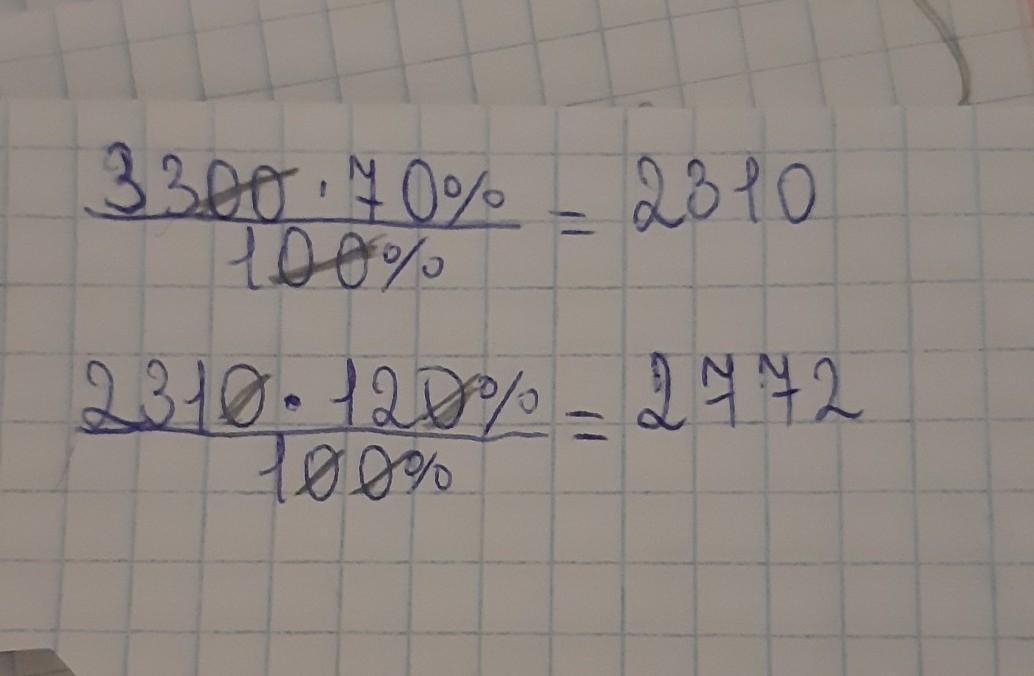 3300 · 70%
100%
= 2310
2310 · 120%
100%
= 2772